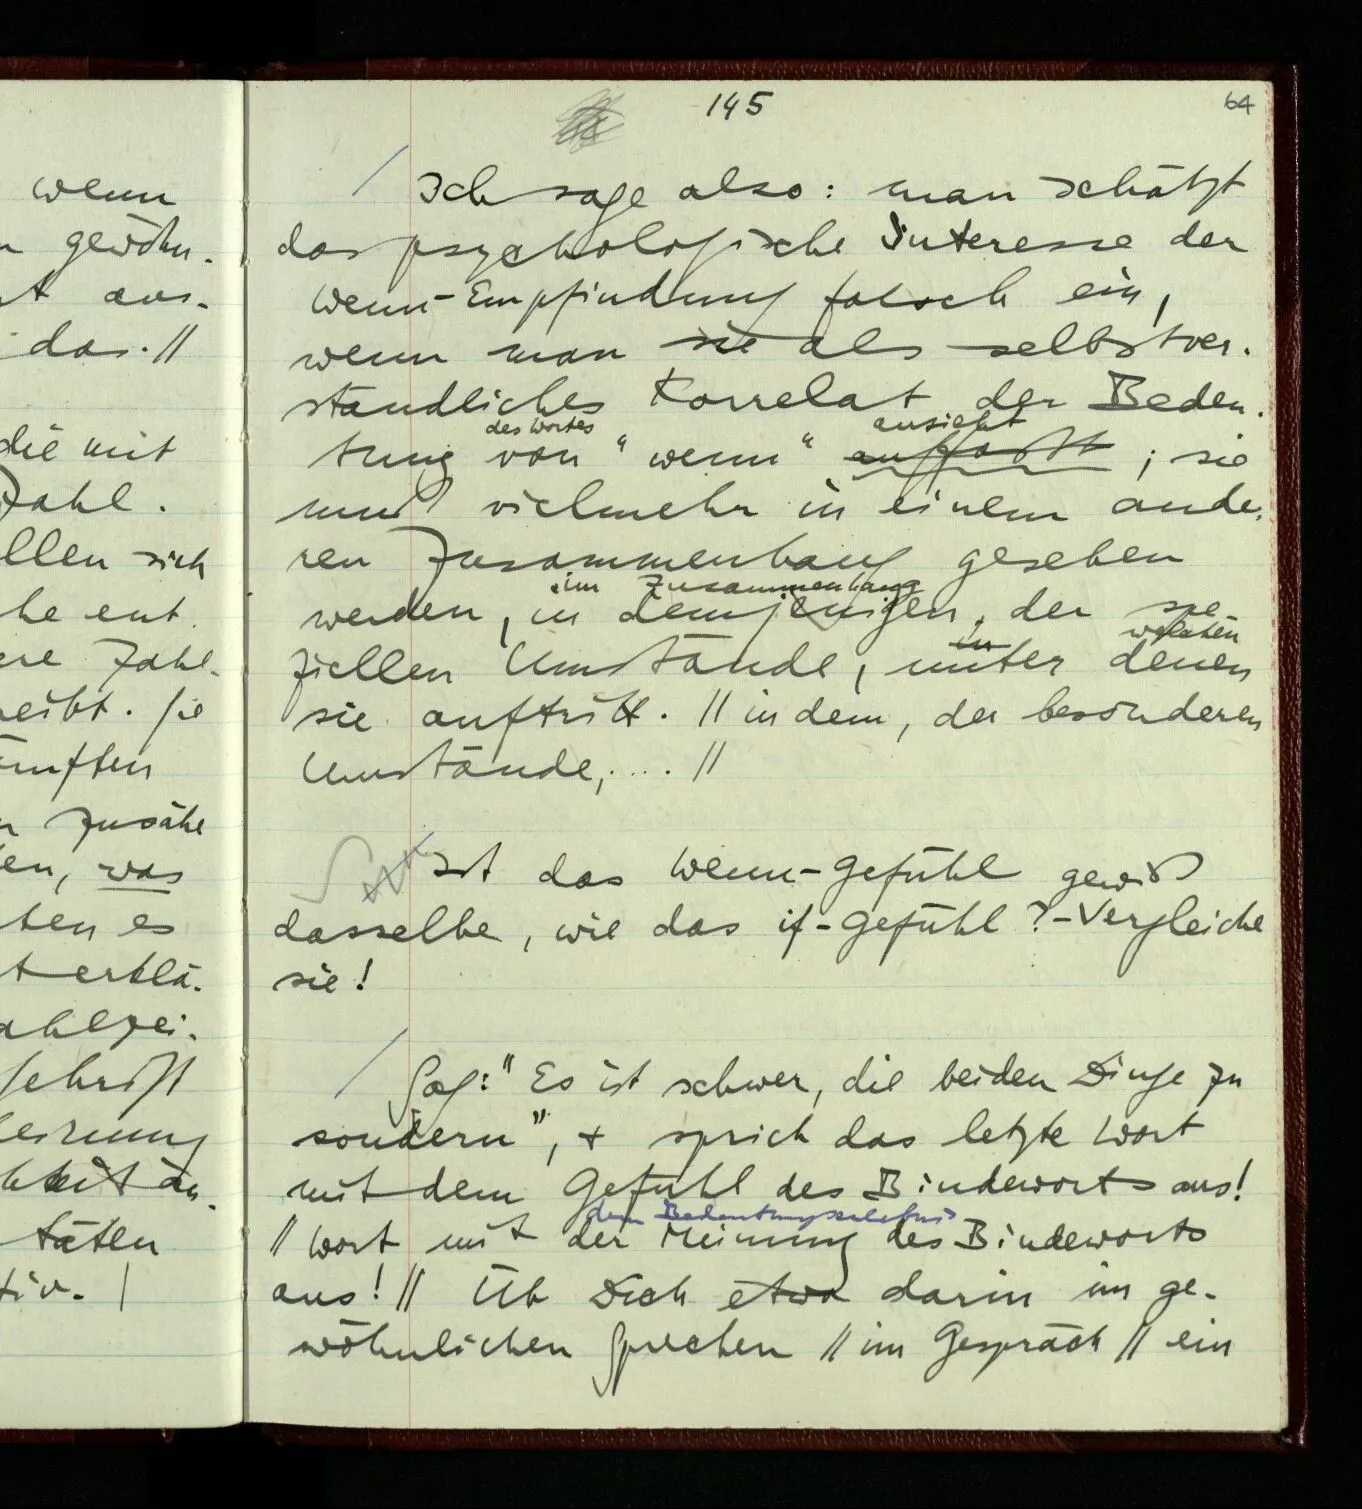 wenn
gewöhn-
aus-
das. //
die mit
Zahl.
llen sich
he ent
Zahl-
eibt. Sie
ünften
zusähe
en, was
ten es
t erklä-
ahlzei-
Schrift
täten
tiv. |
145
64
/ Ich sage also: man schätzt
das psychologische Interesse der
Wenn-Empfindung falsch ein,
wenn man sie als selbstver-
ständliches Korrelat der Bedeu-
des Wortes ansieht
tung von "wenn" auffaßt ; sie
muß vielmehr in einem ande-
ren Zusammenhang gesehen
im Zusammenhang
werden, in demjenigen, der spe-
in welchen
ziellen Umstände, unter denen
sie auftritt. // in dem, der besonderen
Umstände, .... //
Ist das Wenn-Gefühl gewiß
dasselbe, wie das if-Gefühl? – Vergleiche
sie!
/ Sag: "Es ist schwer, die beiden Dinge zu
sondern", + sprich das letzte Wort
mit dem Gefühl des Bindeworts aus!
dem Bedeutungserlebnis
// Wort mit der Meinung des Bindeworts
aus! // Üb Dich etwa darin im ge-
wöhnlichen Sprechen // im Gespräch // ein